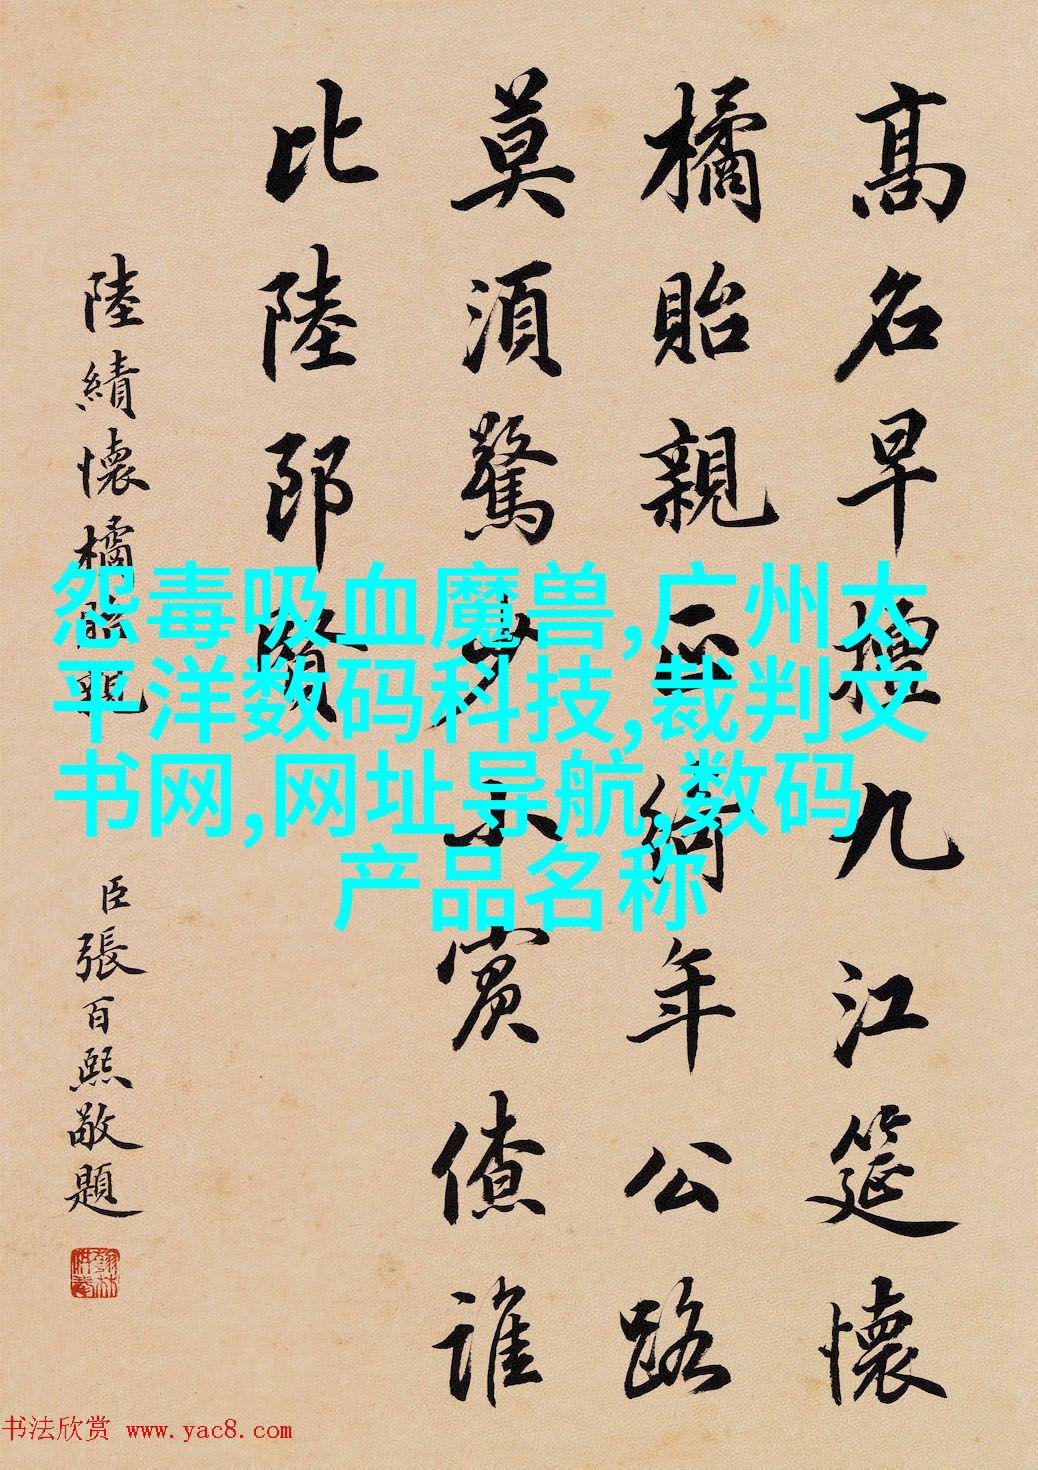 高名早擅九江筵懷
橘貽親正綺年公路
莫須驚少小賓僚誰
比陸郎賢
陸績懷橘貽親
臣張百熙敬題
怨毒吸血魔兽,广州太
平洋数码科技,裁判文
书网,网址导航,数码
产品名称
书法欣赏 www.yac8.com